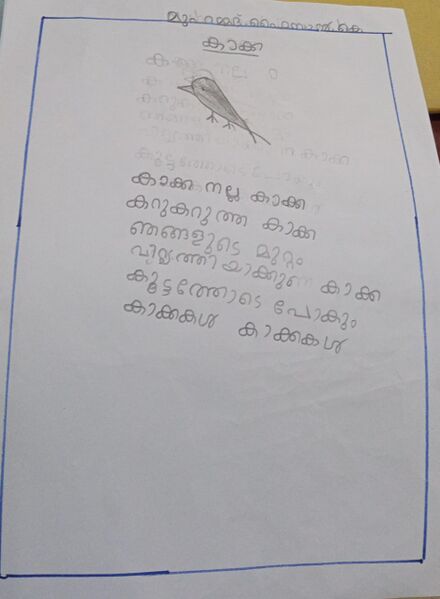 മുഹമ്മദ് ഫൈസാൻ കെ
കാക്ക
കാക്ക നല്ല കാക്ക
കറുകറുത്ത കാക്ക
ഞങ്ങളുടെ മുറ്റം
വൃത്തിയാക്കുന്ന കാക്ക
കൂട്ടത്തോടെ പോകും
കാക്കകൾ കാക്കകൾ